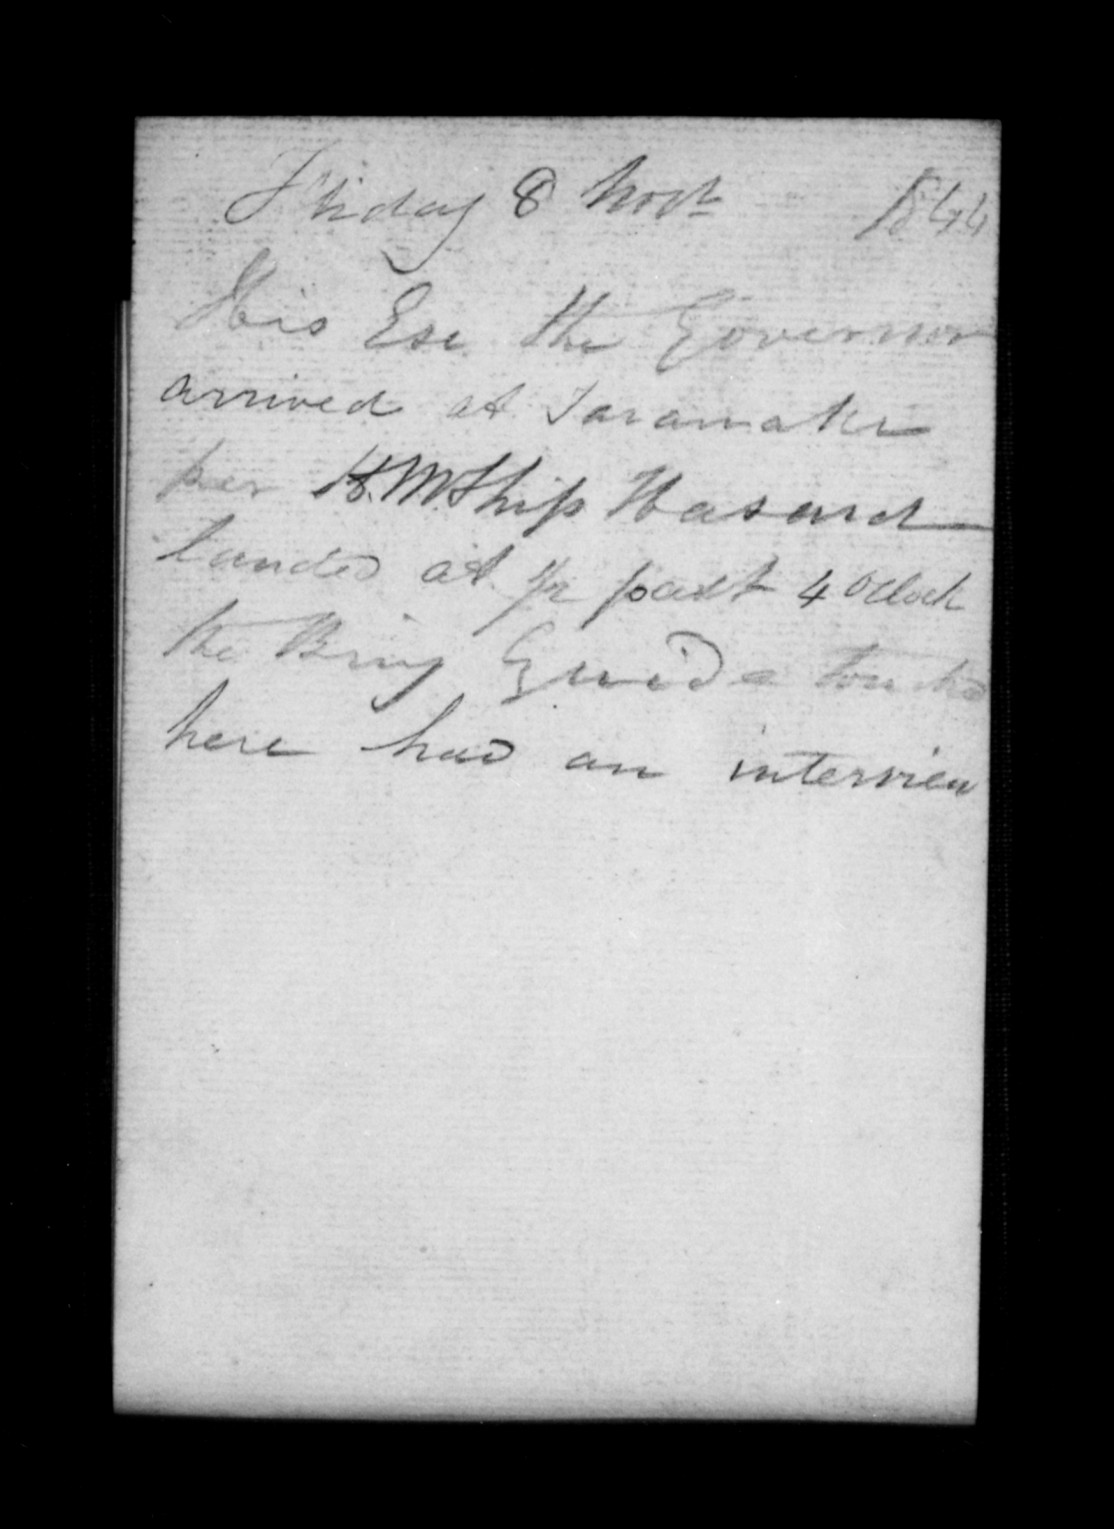 Friday 8 Novr 1844
His Exe the Governor
arrived at Taranake
per H.M. Ship Hasard
landed at 1/2 past 4 OClock
the Brig Guide touched
here had an interview